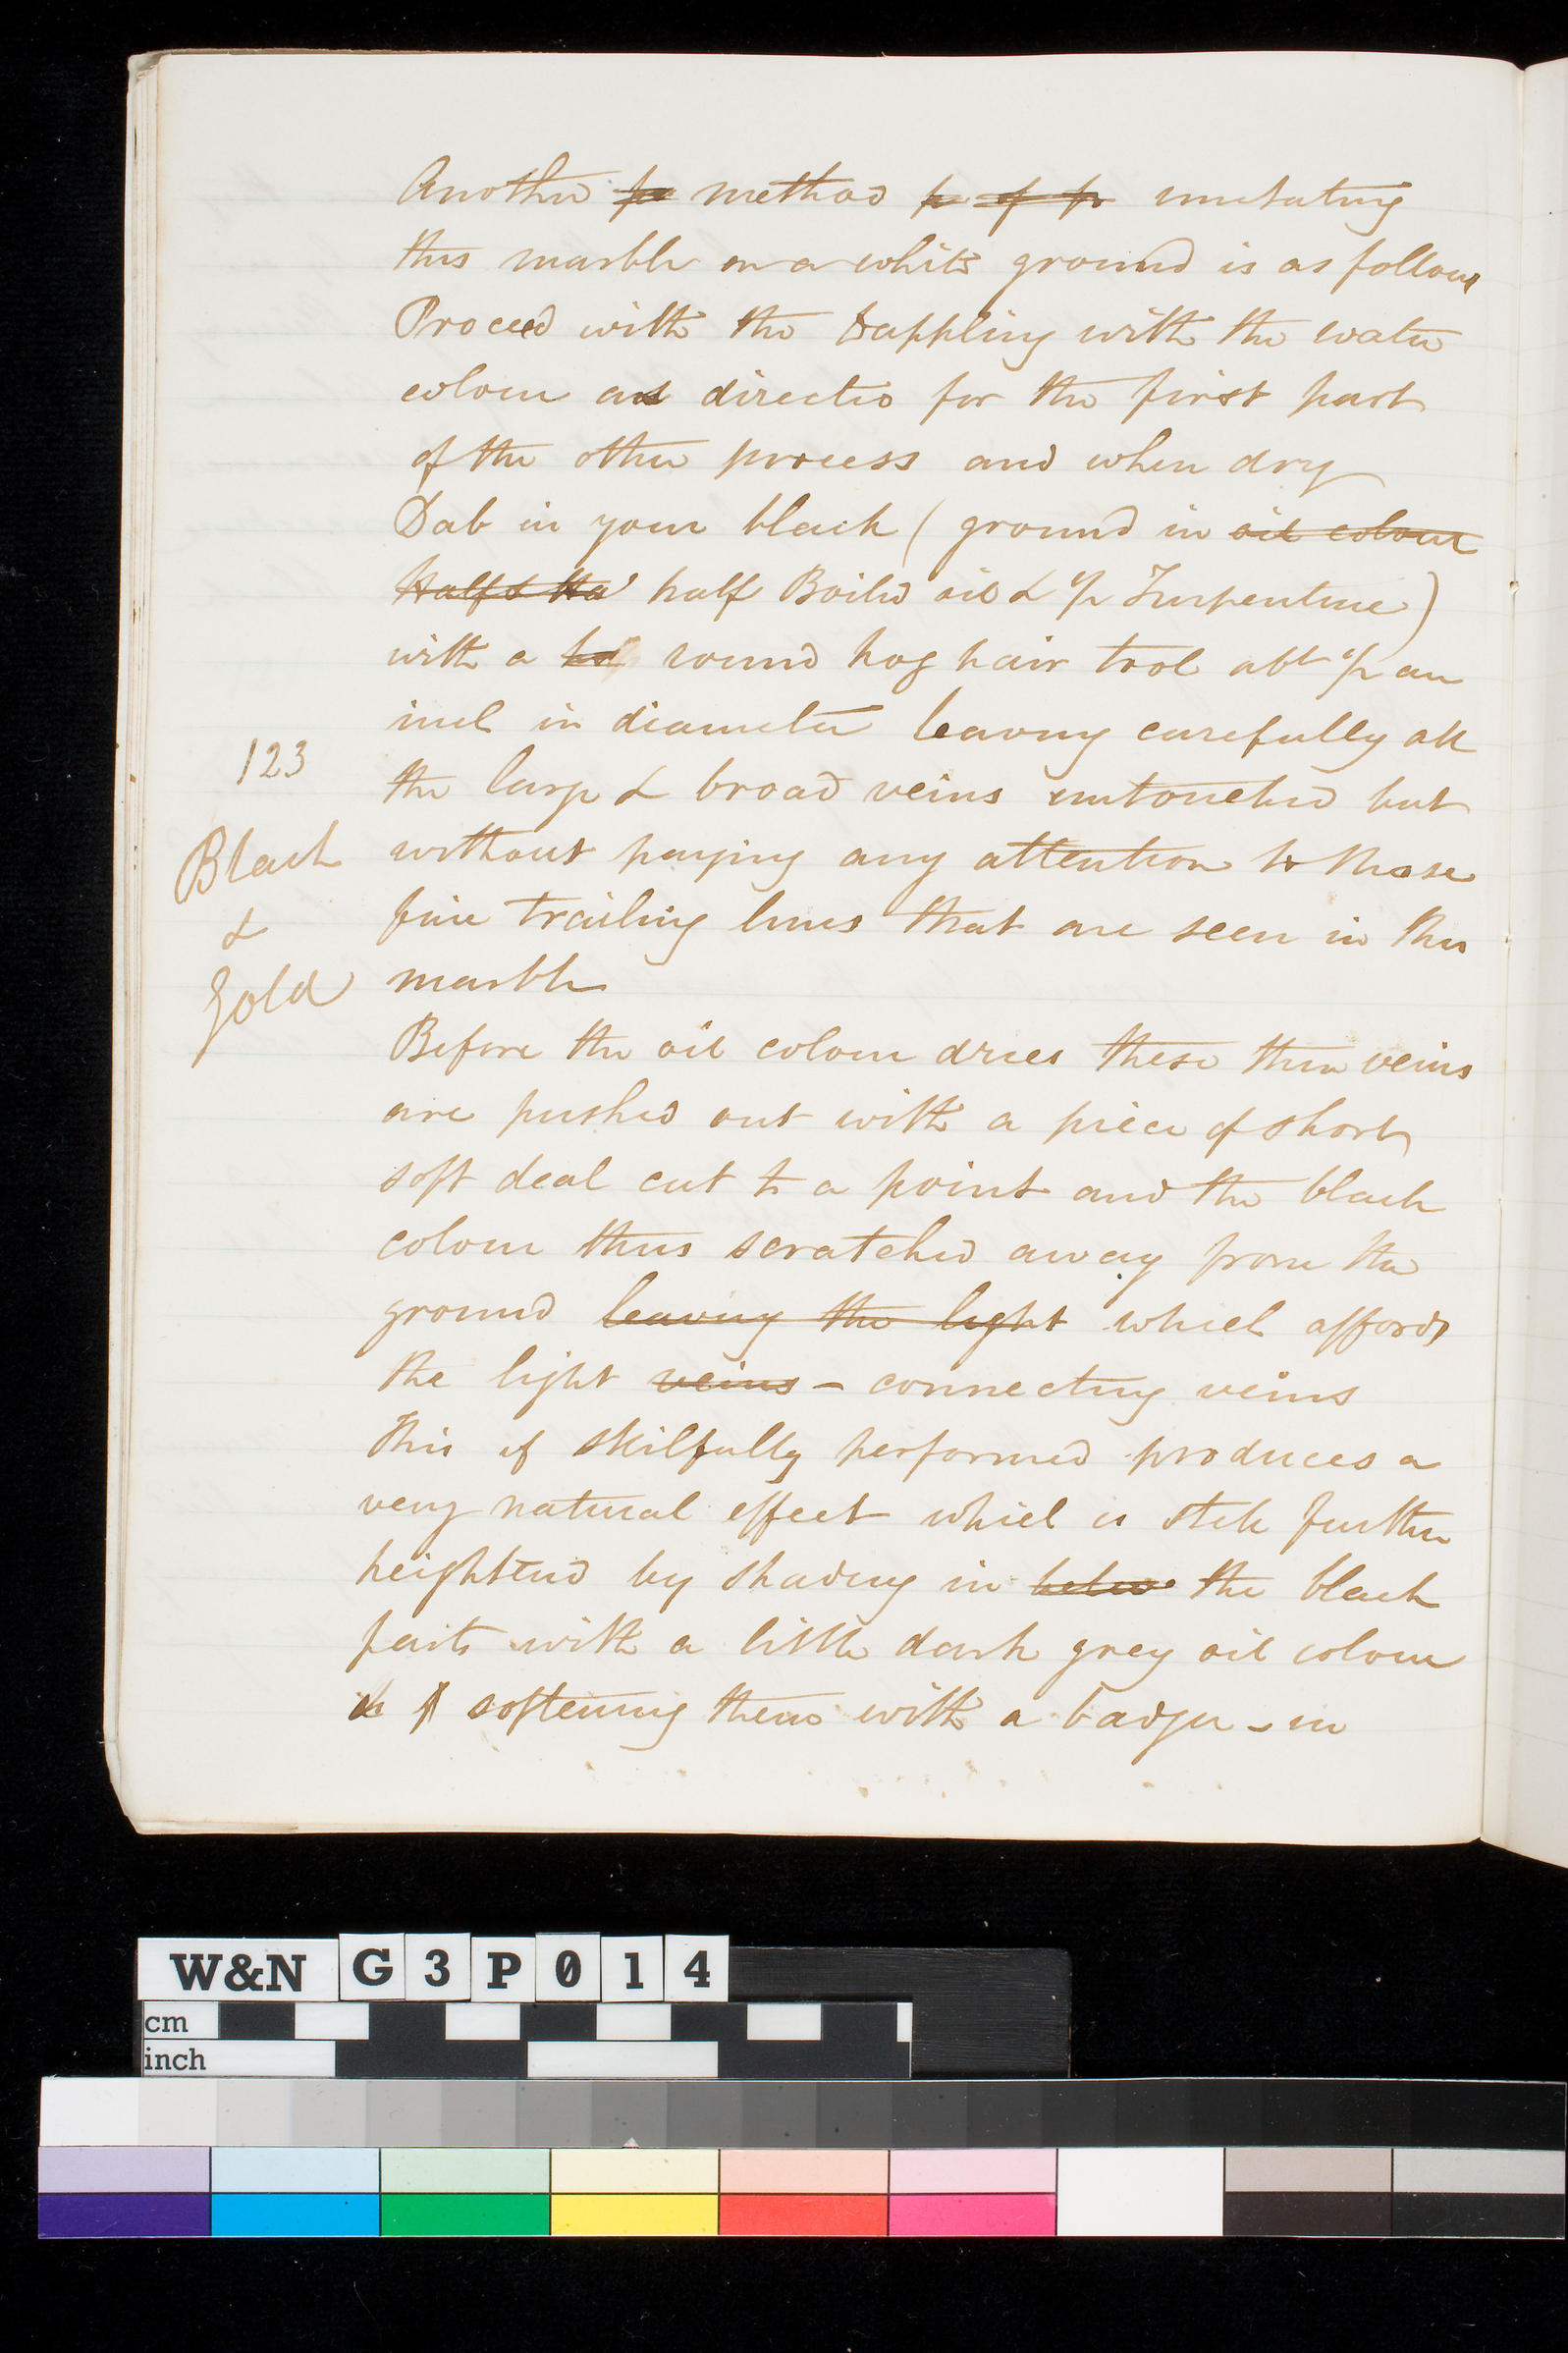 Another method imitating
this marble on a white ground is as follows
Proceed with the dappling with the water
colour as directed for the first part
of the other process and when dry
Dab in your black (ground in oil colour
Half & Ha half Boiled oil & 1/2 Turpentine)
with a round hog hair tool abt 1/2 an
inch in diameter leaving carefully all
123
the large & broad veins untouched but
Black
without paying any attention to those
&
fine trailing lines that are seen in this
Gold
marble
Before the oil colour dries these thin veins
are pushed out with a piece of short
soft deal cut to a point and the black
colour thus scratched away from the
ground leaving the light which affords
the light veins - connecting veins
This if skilfully performed produces a
very natural effect which is still further
heightened by shading in below the black
parts with a little dark grey oil colour
softening them with a badger - in
W&N G3P014
cm
inch